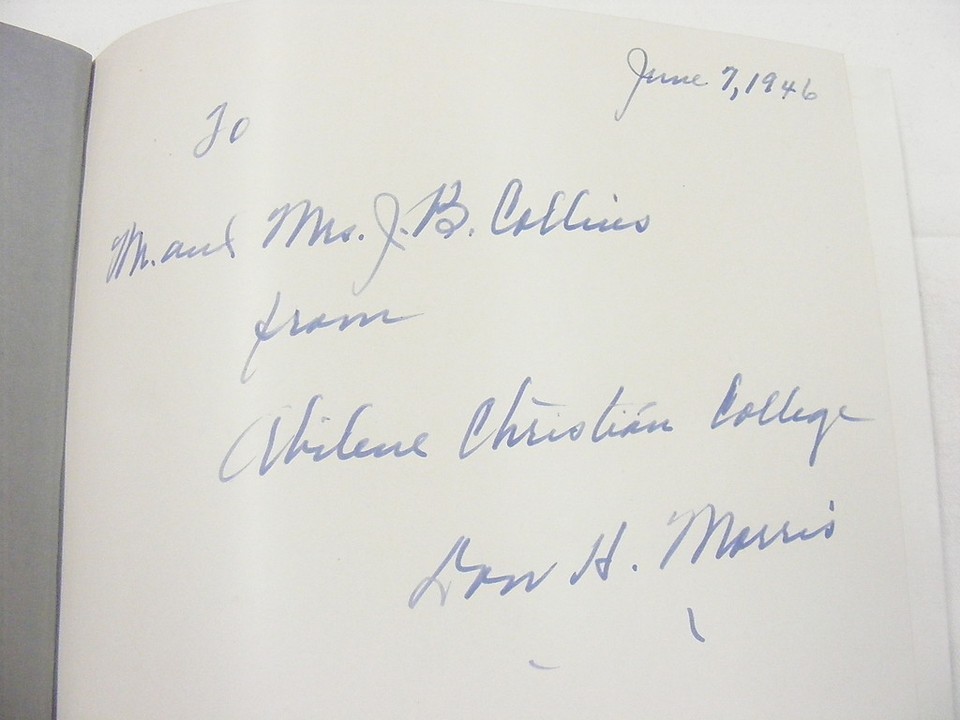 June 7, 1946
To
Mr. and Mrs. J. B. Collins
from
Abilene Christian College
Don H. Morris